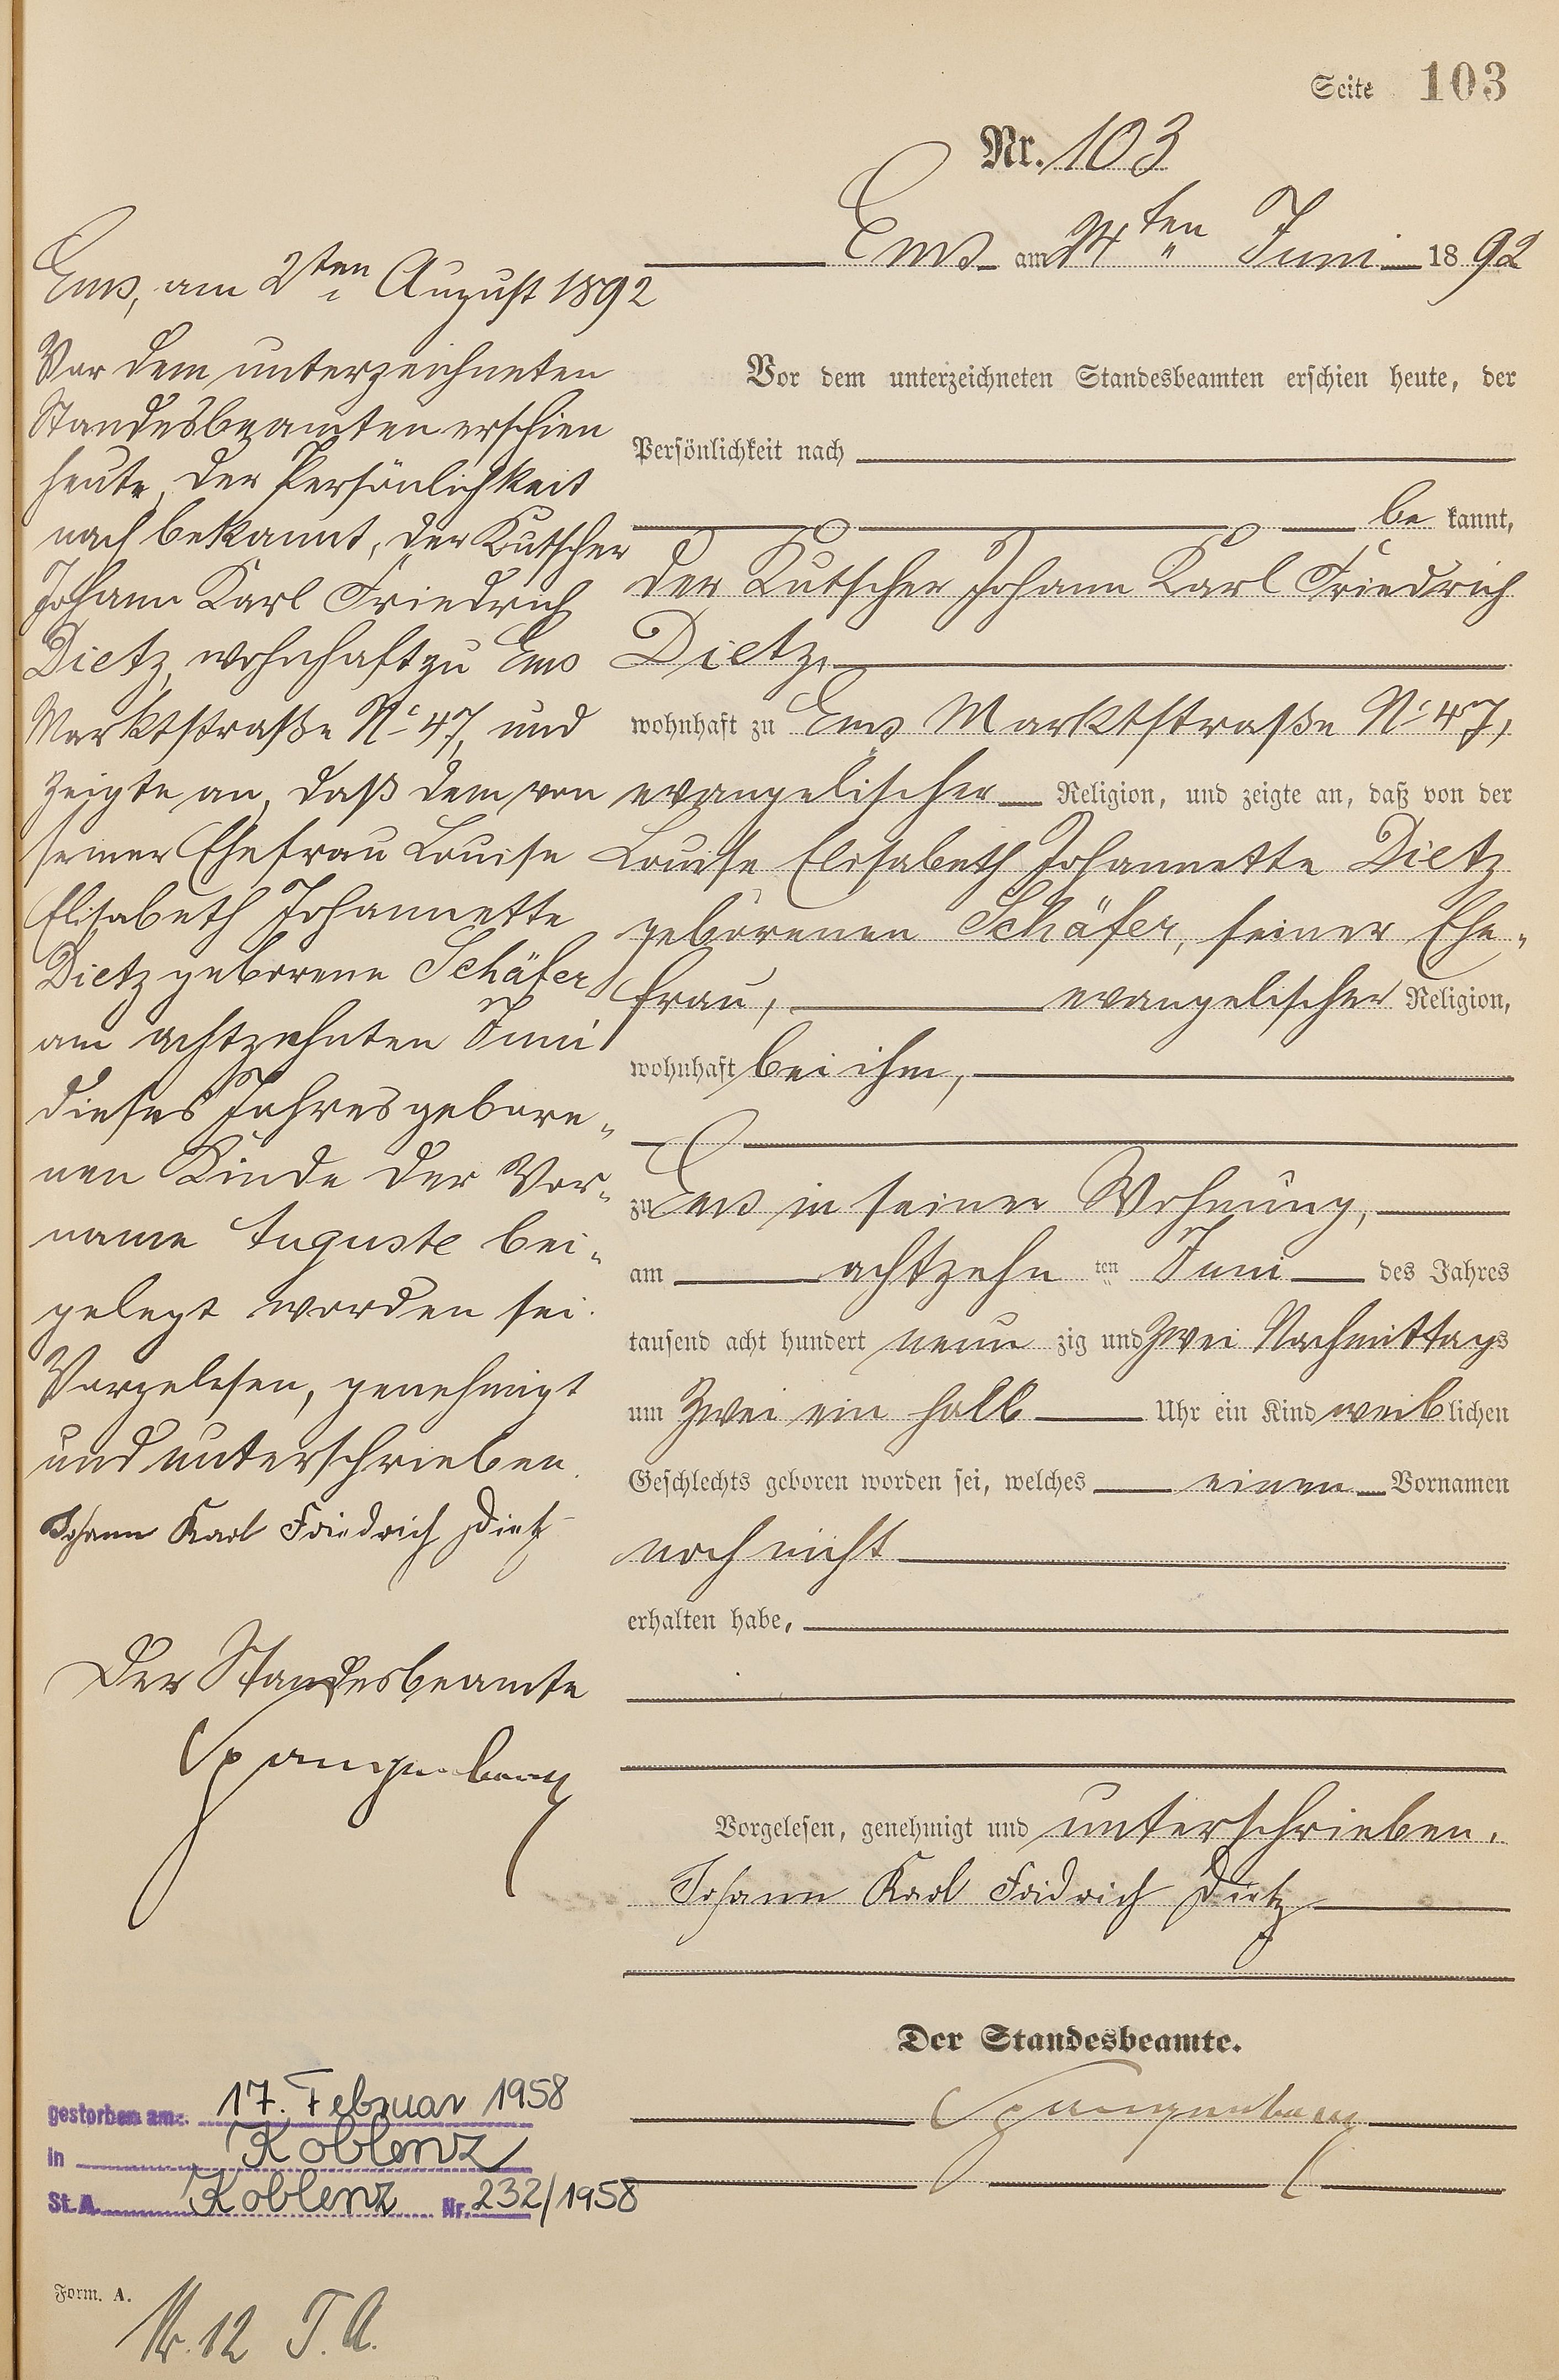 Seite 103
Nr. 103
Ems am 24ten Juni 1892
Vor dem unterzeichneten Standesbeamten erschien heute, der
Persönlichkeit nach
be kannt,
der Kutscher Johann Karl Friedrich
Dietz,
wohnhaft zu Ems Marktstraße No 47,
evangelischer Religion, und zeigte an, daß von der
Louise Elisabeth Johannette Dietz
geborenen Schäfer, seiner Ehe-
frau, evangelischer Religion,
wohnhaft bei ihm,
zu Ems in seiner Wohnung,
am achtzehn ten Juni des Jahres
tausend acht hundert neun zig und zwei Nachmittags
um zwei ein halb Uhr ein Kind weiblichen
Geschlechts geboren worden sei, welches einen Vornamen
noch nicht
erhalten habe,
Vorgelesen, genehmigt und unterschrieben.
Johann Karl Fridrich Dietz
Der Standesbeamte.
Spangenberg
Ems, am 2ten August 1892
Vor dem unterzeichneten
Standesbeamten erschien
heute, der Persönlichkeit
nach bekannt, der Kutscher
Johann Karl Friedrich
Dietz, wohnhaft zu Ems
Marktstraße No 47, und
zeigte an, daß dem von
seiner Ehefrau Louise
Elisabeth Johannette
Dietz geborene Schäfer
am achtzehnten Juni
dieses Jahres gebore-
nen Kinde der Vor-
name Auguste bei-
gelegt worden sei.
Vorgelesen, genehmigt
und unterschrieben.
Johann Karl Friedrich Dietz
Der Standesbeamte
Spangenberg
gestorben am: 17. Februar 1958
in Koblenz
St. A. Koblenz Nr. 232/1958
Form. A.
Nr. 12 T. A.